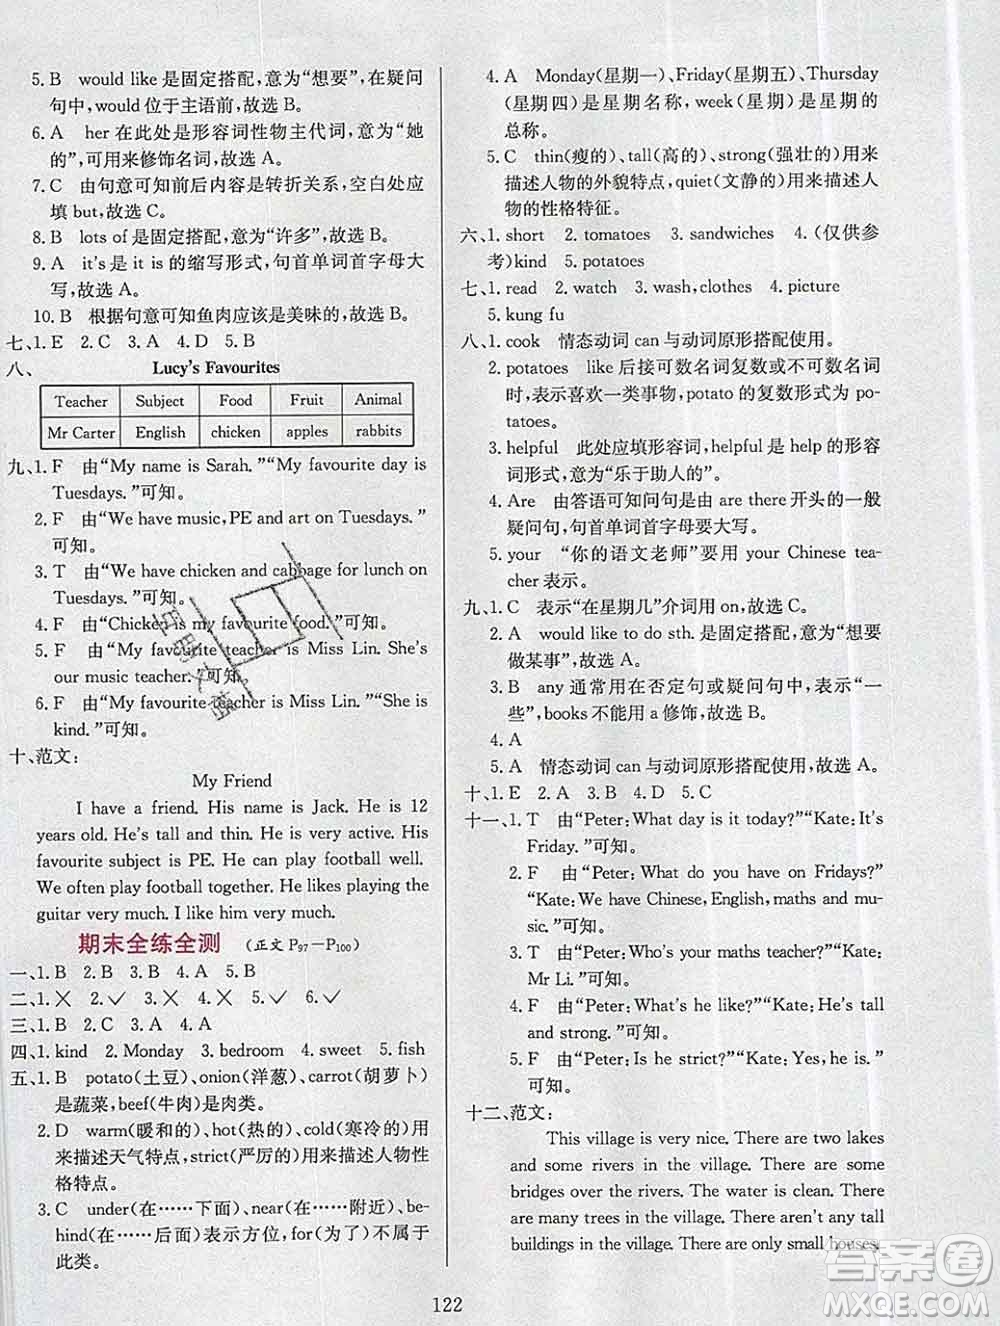 5. B　would like是固定搭配,意为“想要”,在疑问
句中,would位于主语前,故选B。
6. A　her在此处是形容词性物主代词,意为“她
的”,可用来修饰名词,故选A。
7. C　由句意可知前后内容是转折关系,空白处应
填but,故选C。
8. B　lots of是固定搭配,意为“许多”,故选B。
9. A　it's是it is的缩写形式,句首单词首字母大
写,故选A。
10. B　根据句意可知鱼肉应该是美味的,故选B。
七、1. E　2. C　3. A　4. D　5. B
八、　Lucy's Favourites
Teacher　Subject　Food　Fruit　Animal
Mr Carter　English　chicken　apples　rabbits
九、1. F　由“My name is Sarah.”“My favourite day is
Tuesdays.”可知。
2. F　由“We have music,PE and art on Tuesdays.”
可知。
3. T　由“We have chicken and cabbage for lunch on
Tuesdays.”可知。
4. F　由“Chicken is my favourite food.”可知。
5. F　由“My favourite teacher is Miss Lin. She's
our music teacher.”可知。
6. F　由“My favourite teacher is Miss Lin.”“She is
kind.”可知。
十、范文:
My Friend
I have a friend. His name is Jack. He is 12
years old. He's tall and thin. He is very active. His
favourite subject is PE. He can play football well.
We often play football together. He likes playing the
guitar very much. I like him very much.
期末全练全测　(正文 P97—P100)
一、1. B　2. B　3. A　4. C　5. B　6. A
二、1. ×　2. ✓　3. ×　4. ×　5. ✓　6. ✓
三、1. B　2. C　3. A　4. A
四、1. kind　2. Monday　3. bedroom　4. sweet　5. fish
五、1. B　potato(土豆)、onion(洋葱)、carrot(胡萝卜)
是蔬菜,beef(牛肉)是肉类。
2. D　warm(暖和的)、hot(热的)、cold(寒冷的)用
来描述天气特点,strict(严厉的)用来描述人物性
格特点。
3. C　under(在……下面)、near(在……附近)、be-
hind(在……后面)表示方位,for(为了)不属于
此类。
4. A　Monday(星期一)、Friday(星期五)、Thursday
(星期四)是星期名称,week(星期)是星期的
总称。
5. C　thin(瘦的)、tall(高的)、strong(强壮的)用来
描述人物的外貌特点,quiet(文静的)用来描述人
物的性格特征。
六、1. short　2. tomatoes　3. sandwiches　4. (仅供参
考)kind　5. potatoes
七、1. read　2. watch　3. wash,clothes　4. picture
5. kung fu
八、1. cook　情态动词can与动词原形搭配使用。
2. potatoes　like后接可数名词复数或不可数名词
时,表示喜欢一类事物,potato的复数形式为po-
tatoes。
3. helpful　此处应填形容词,helpful是help的形容
词形式,意为“乐于助人的”。
4. Are　由答语可知问句是由are there开头的一般
疑问句,句首单词首字母要大写。
5. your　“你的语文老师”要用your Chinese tea-
cher表示。
九、1. C　表示“在星期几”介词用on,故选C。
2. A　would like to do sth.是固定搭配,意为“想要
做某事”,故选A。
3. B　any通常用在否定句或疑问句中,表示“一
些”,books不能用a修饰,故选B。
4. A
5. A　情态动词can与动词原形搭配使用,故选A。
十、1. E　2. A　3. B　4. D　5. C
十一、1. T　由“Peter:What day is it today?”“Kate:It's
Friday.”可知。
2. F　由“Peter:What do you have on Fridays?”
“Kate:We have Chinese,English,maths and mu-
sic.”可知。
3. T　由“Peter:Who's your maths teacher?”“Kate:
Mr Li.”可知。
4. F　由“Peter:What's he like?”“Kate:He's tall
and strong.”可知。
5. F　由“Peter:Is he strict?”“Kate:Yes,he is.”
可知。
十二、范文:
This village is very nice. There are two lakes
and some rivers in the village. There are some
bridges over the rivers. The water is clean. There
are many trees in the village. There aren't any tall
buildings in the village. There are only small houses.
122
答案圈
MXQE.COM